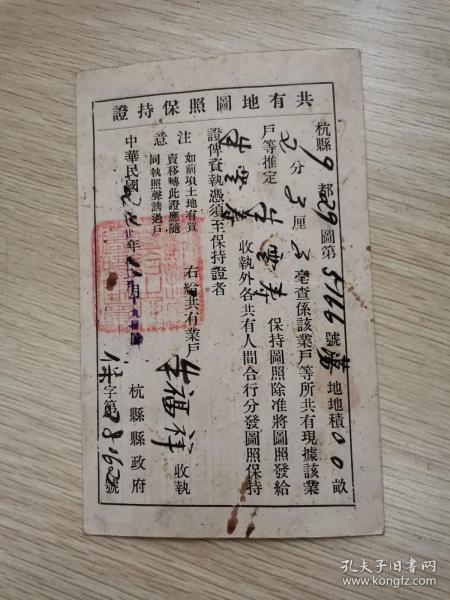 共有地圖照保持證
杭縣9都29圖第5166號蕩地地積00畝
分3厘 毫查係該業戶等所共有現據該業
戶等推定 保持圖照除准將圖照發給
收執外各共有人間合行分發圖照保持
證俾資執憑須至保持證者
右給共有業戶朱福祥收執
注意
如前項土地有買
賣移轉此證應隨
同執照聲請過戶
中華民國 年 月
杭縣縣政府
字第2862號
孔夫子旧书网
www.kongfz.com